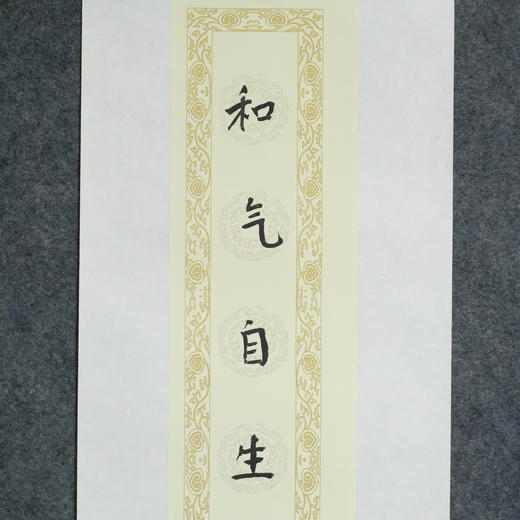 和气自生